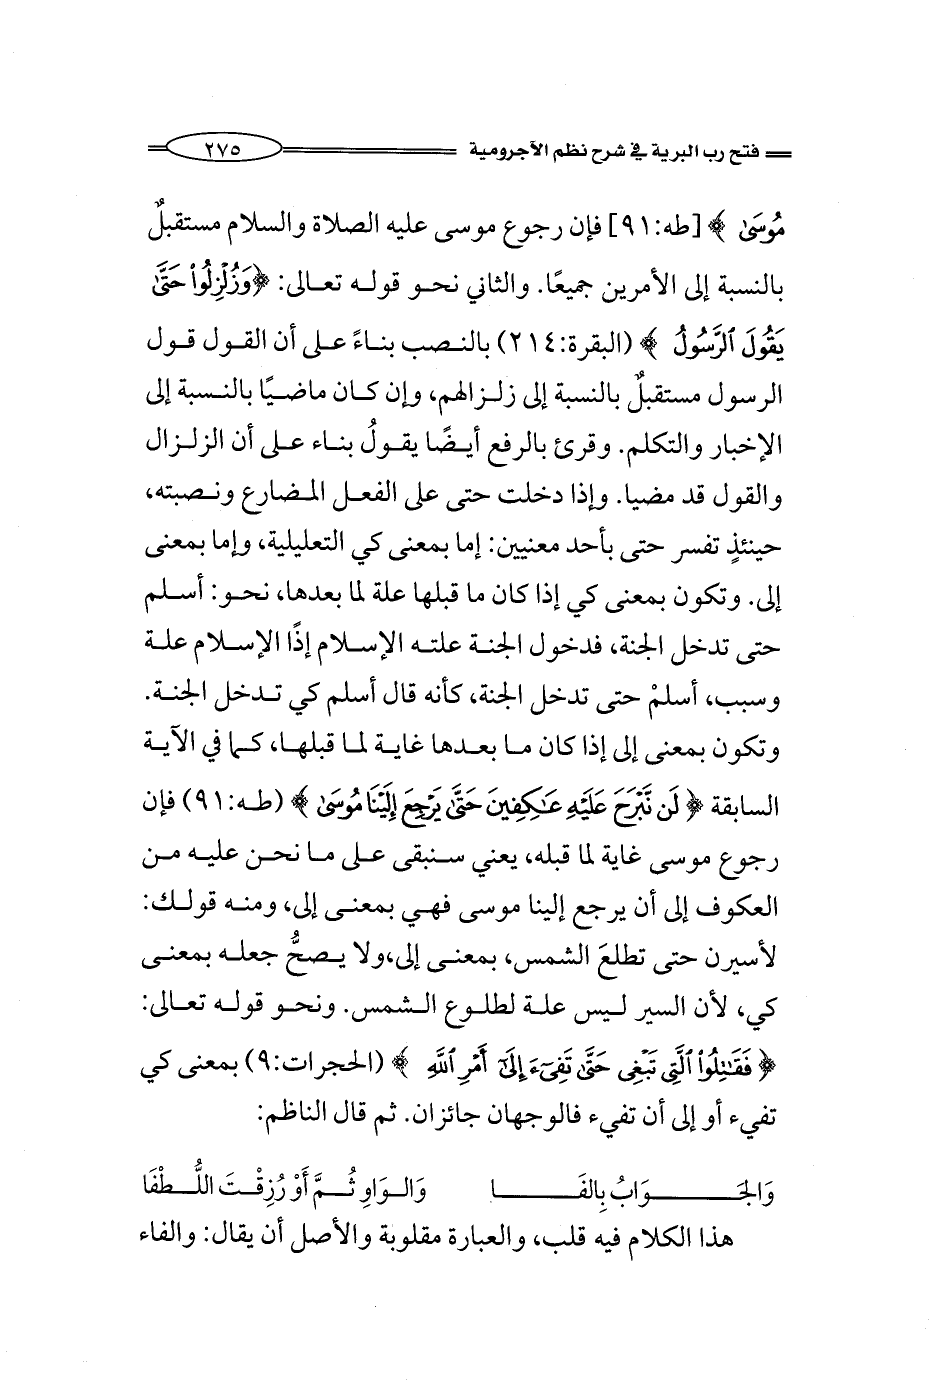 فتح رب البرية في شرح نظم الآجرومية ٢٧٥
مُوسَىٰ ﴾ [طه:٩١] فإن رجوع موسى عليه الصلاة والسلام مستقبلٌ
بالنسبة إلى الأمرين جميعًا. والثاني نحو قوله تعالى: ﴿وَزُلْزِلُوا۟ حَتَّىٰ
يَقُولَ ٱلرَّسُولُ ﴾ (البقرة:٢١٤) بالنصب بناءً على أن القول قول
الرسول مستقبلٌ بالنسبة إلى زلزالهم، وإن كان ماضيًا بالنسبة إلى
الإخبار والتكلم. وقرئ بالرفع أيضًا يقولُ بناء على أن الزلزال
والقول قد مضيا. وإذا دخلت حتى على الفعل المضارع ونصبته،
حينئذٍ تفسر حتى بأحد معنيين: إما بمعنى كي التعليلية، وإما بمعنى
إلى. وتكون بمعنى كي إذا كان ما قبلها علة لما بعدها، نحو: أسلم
حتى تدخل الجنة، فدخول الجنة علته الإسلام إذًا الإسلام علة
وسبب، أسلمْ حتى تدخل الجنة، كأنه قال أسلم كي تدخل الجنة.
وتكون بمعنى إلى إذا كان ما بعدها غاية لما قبلها، كما في الآية
السابقة ﴿ لَن نَّبْرَحَ عَلَيْهِ عَـٰكِفِينَ حَتَّىٰ يَرْجِعَ إِلَيْنَا مُوسَىٰ ﴾ (طه:٩١) فإن
رجوع موسى غاية لما قبله، يعني سنبقى على ما نحن عليه من
العكوف إلى أن يرجع إلينا موسى فهي بمعنى إلى، ومنه قولك:
لأسيرن حتى تطلعَ الشمس، بمعنى إلى،ولا يصحُّ جعله بمعنى
كي، لأن السير ليس علة لطلوع الشمس. ونحو قوله تعالى:
﴿ فَقَـٰتِلُوا۟ ٱلَّتِى تَبْغِى حَتَّىٰ تَفِىٓءَ إِلَىٰٓ أَمْرِ ٱللَّهِ ﴾ (الحجرات:٩) بمعنى كي
تفيء أو إلى أن تفيء فالوجهان جائزان. ثم قال الناظم:
وَالجَوَابُ بِالفَا وَالوَاوِ ثُمَّ أَوْ رُزِقْتَ اللُّطْفَا
هذا الكلام فيه قلب، والعبارة مقلوبة والأصل أن يقال: والفاء